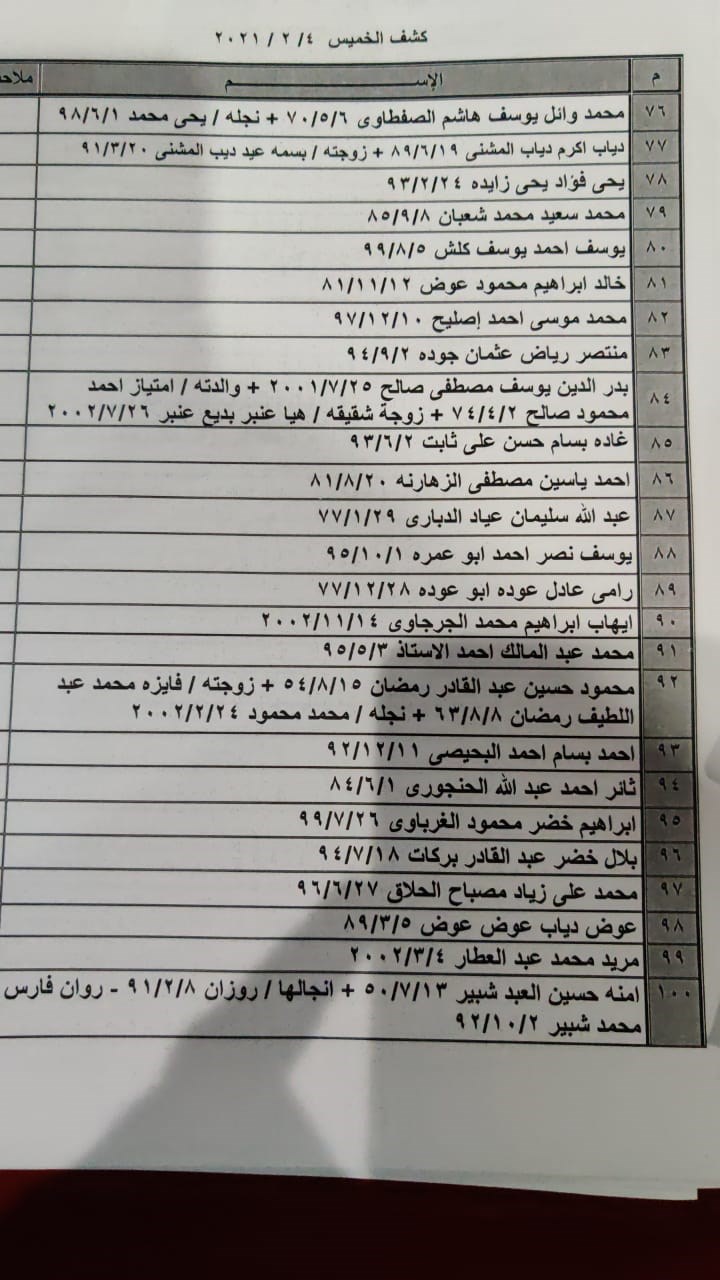 كشف الخميس ٢٠٢١ / ٢ / ٤
م الإســـــــم ملاحـ
٧٦ محمد وائل يوسف هاشم الصفطاوى ٧٠/٥/٦ + نجله / يحى محمد ٩٨/٦/١
٧٧ دياب اكرم دياب المشنى ٨٩/٦/١٩ + زوجته / بسمه عيد ديب المشنى ٩١/٣/٢٠
٧٨ يحى فؤاد يحى زايده ٩٣/٢/٢٤
٧٩ محمد سعيد محمد شعبان ٨٥/٩/٨
٨٠ يوسف احمد يوسف كلش ٩٩/٨/٥
٨١ خالد ابراهيم محمود عوض ٨١/١١/١٢
٨٢ محمد موسى احمد إصليح ٩٧/١٢/١٠
٨٣ منتصر رياض عثمان جوده ٩٤/٩/٢
٨٤ بدر الدين يوسف مصطفى صالح ٢٠٠١/٧/٢٥ + والدته / امتياز احمد
محمود صالح ٧٤/٤/٢ + زوجة شقيقه / هيا عنبر بديع عنبر ٢٠٠٢/٧/٢٦
٨٥ غاده بسام حسن على ثابت ٩٣/٦/٢
٨٦ احمد ياسين مصطفى الزهارنه ٨١/٨/٢٠
٨٧ عبد الله سليمان عياد الدبارى ٧٧/١/٢٩
٨٨ يوسف نصر احمد ابو عمره ٩٥/١٠/١
٨٩ رامى عادل عوده ابو عوده ٧٧/١٢/٢٨
٩٠ ايهاب ابراهيم محمد الجرجاوى ٢٠٠٢/١١/١٤
٩١ محمد عبد المالك احمد الاستاذ ٩٥/٥/٣
٩٢ محمود حسين عبد القادر رمضان ٥٤/٨/١٥ + زوجته / فايزه محمد عبد
اللطيف رمضان ٦٣/٨/٨ + نجله / محمد محمود ٢٠٠٢/٢/٢٤
٩٣ احمد بسام احمد البحيصى ٩٢/١٢/١١
٩٤ ثائر احمد عبد الله الحنجورى ٨٤/٦/١
٩٥ ابراهيم خضر محمود الغرباوى ٩٩/٧/٢٦
٩٦ بلال خضر عبد القادر بركات ٩٤/٧/١٨
٩٧ محمد على زياد مصباح الحلاق ٩٦/٦/٢٧
٩٨ عوض دياب عوض عوض ٨٩/٣/٥
٩٩ مريد محمد عبد العطار ٢٠٠٢/٣/٤
١٠٠ امنه حسين العبد شبير ٥٠/٧/١٣ + انجالها / روزان ٩١/٢/٨ - روان فارس
محمد شبير ٩٢/١٠/٢